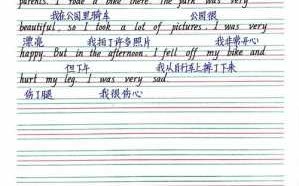 parents. I rode a bike there. The park was very
我在公园里骑车 公园很
beautiful, so I took a lot of pictures. I was very
漂亮 我拍了许多照片 我非常开心
happy. But in the afternoon, I fell off my bike and
但下午 我从自行车上掉了下来
hurt my leg. I was very sad.
伤了腿 我很伤心